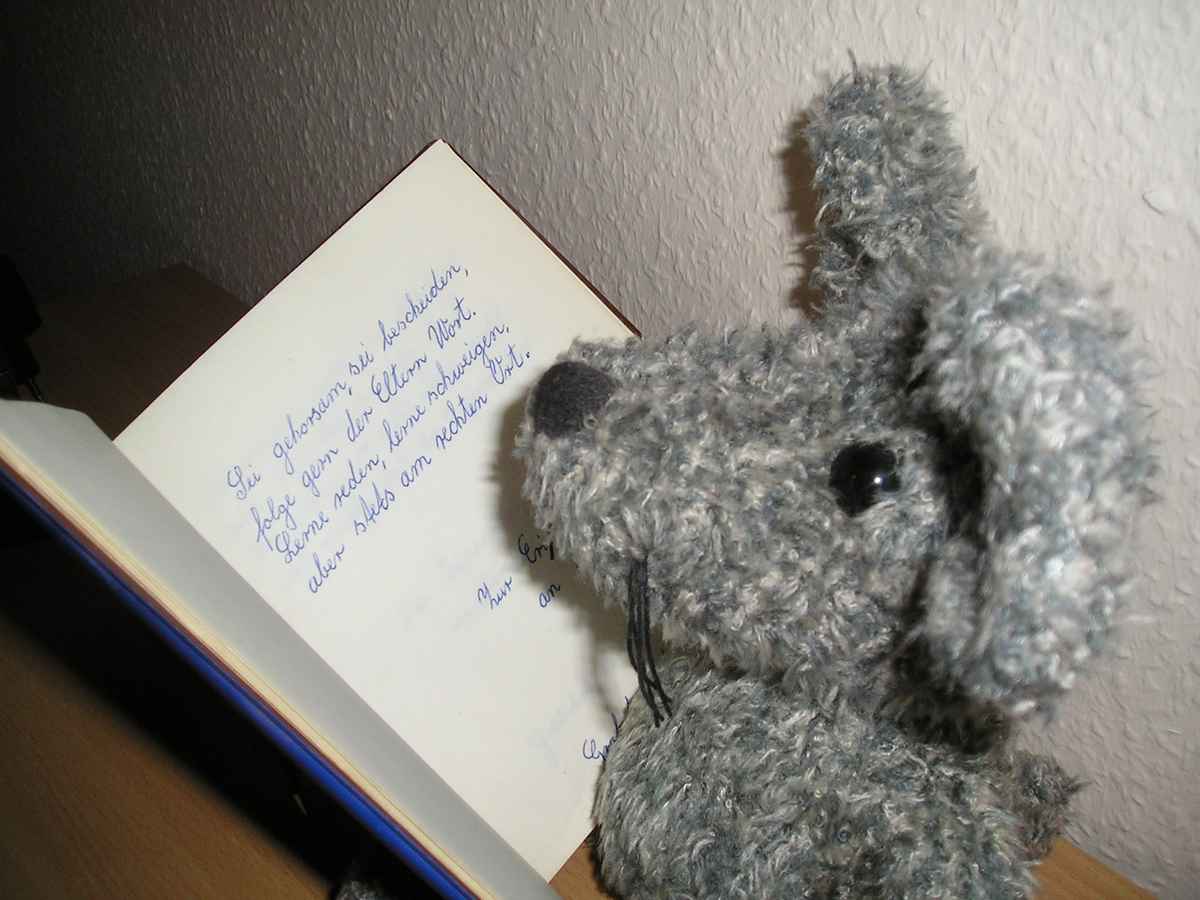 Sei gehorsam, sei bescheiden,
folge gern der Eltern Wort.
Lerne reden, lerne schweigen,
aber stets am rechten Ort.
Zur
an